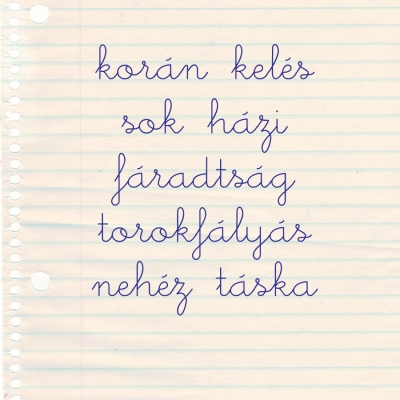 korán kelés
sok házi
fáradtság
torokfályás
nehéz táska